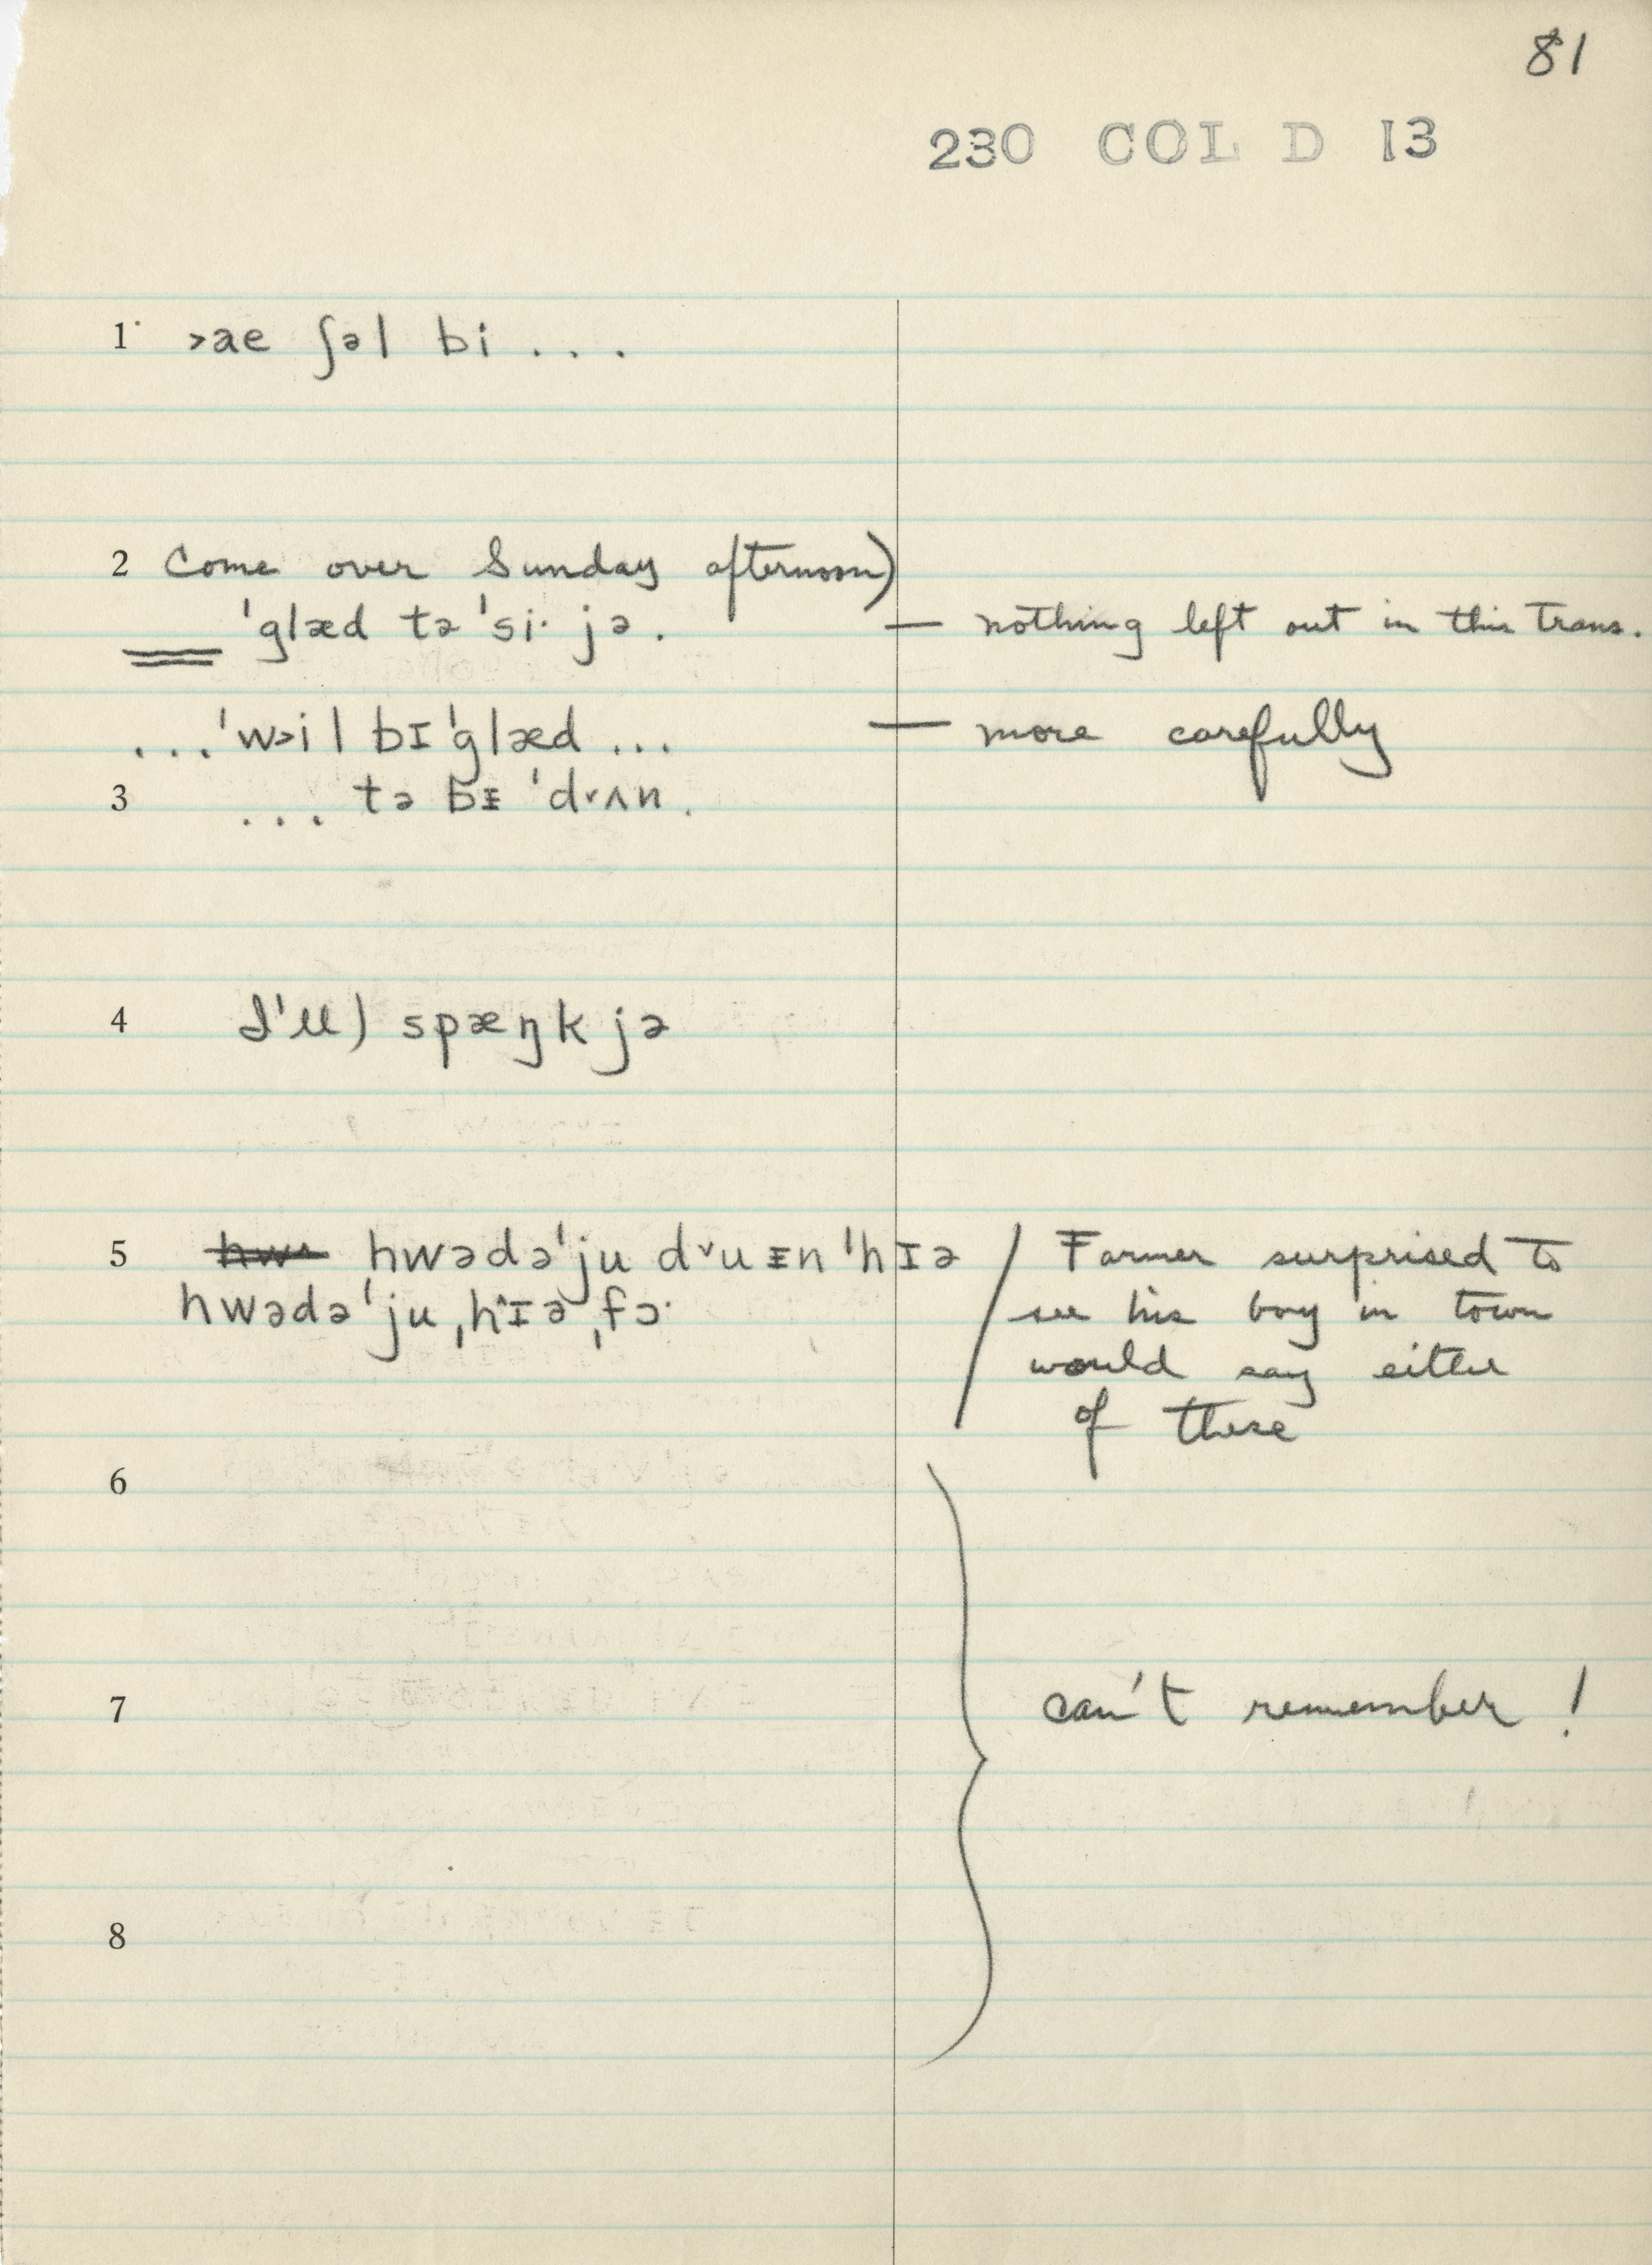 81
230 COL D 13
1 ˃ae ʃəl bi . . .
2 Come over Sunday afternoon)
ˈglæd tə ˈsi· jə . — nothing left out in this trans.
. . . ˈw˃il bɪ ˈglæd . . . — more carefully
3 . . . tə bᵻ ˈd˅ʌn .
4 I'll) spæŋk jə
5 hwədəˈju d˅u ᵻn ˈhɪə / Farmer surprised to
hwədəˈju ˌh˄ɪə ˌfɔ· see his boy in town
would say either
of these
6
7 can't remember !
8